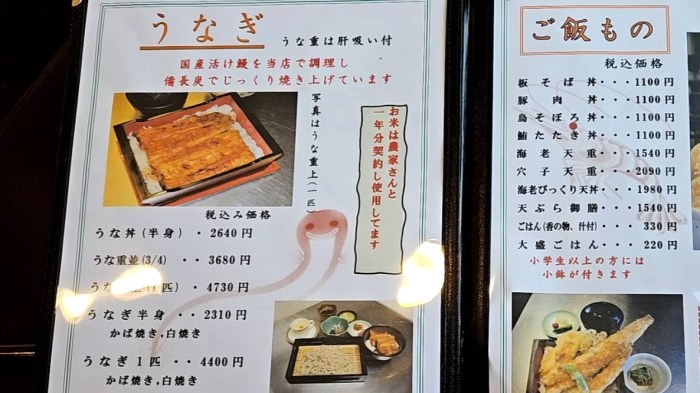 うなぎ
うな重は肝吸い付
国産活け鰻を当店で調理し
備長炭でじっくり焼き上げています
写真はうな重上(一匹)
お米は農家さんと
一年分契約し使用してます
税込み価格
うな丼(半身)・2640円
うな重並(3/4)・・3680円
うな 匹)・4730円
うなぎ半身・・2310円
かば焼き,白焼き
うなぎ1匹・・4400円
かば焼き,白焼き
ご飯もの
税込価格
板そば丼・・・1100円
豚肉丼・・・1100円
鳥そぼろ丼・・・1100円
鮪たたき丼・・・1100円
海老天重・・・1540円
穴子天重・・・2090円
海老びっくり天丼・・・1980円
天ぷら御膳・・・1540円
ごはん(香の物、汁付)・・・330円
大盛ごはん・・・220円
小学生以上の方には
小鉢が付きます